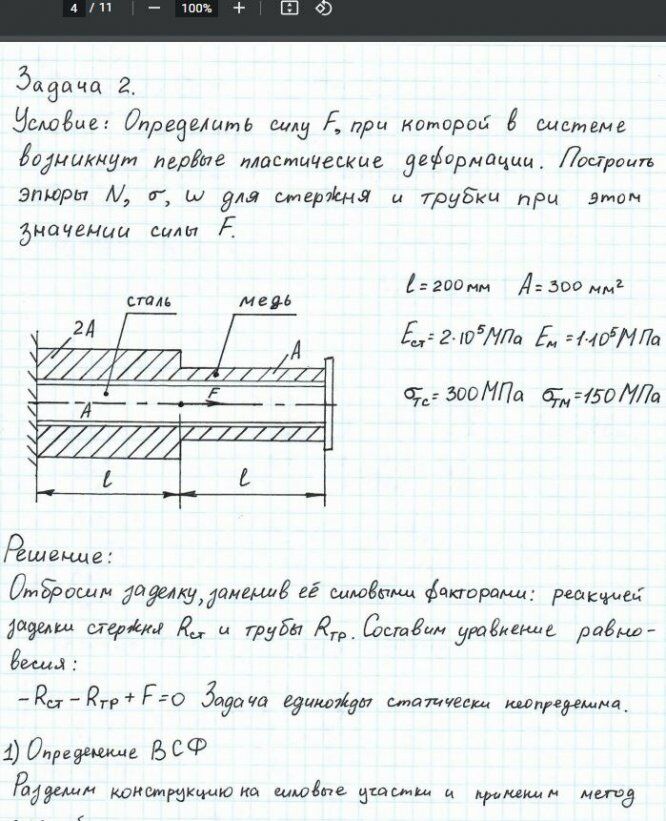 4 / 11 — 100% +
Задача 2.
Условие: Определить силу F, при которой в системе
возникнут первые пластические деформации. Построить
эпюры N, σ, w для стержня и трубки при этом
значении силы F.
сталь медь
2A A
F
A
l l
l = 200 мм A = 300 мм²
Eст = 2·10⁵ МПа Eм = 1·10⁵ МПа
σтс = 300 МПа σтм = 150 МПа
Решение:
Отбросим заделку, заменив её силовыми факторами: реакцией
заделки стержня Rст и трубы Rтр. Составим уравнение равно-
весия:
-Rст - Rтр + F = 0 Задача единожды статически неопределима.
1) Определение ВСФ
Разделим конструкцию на силовые участки и применим метод